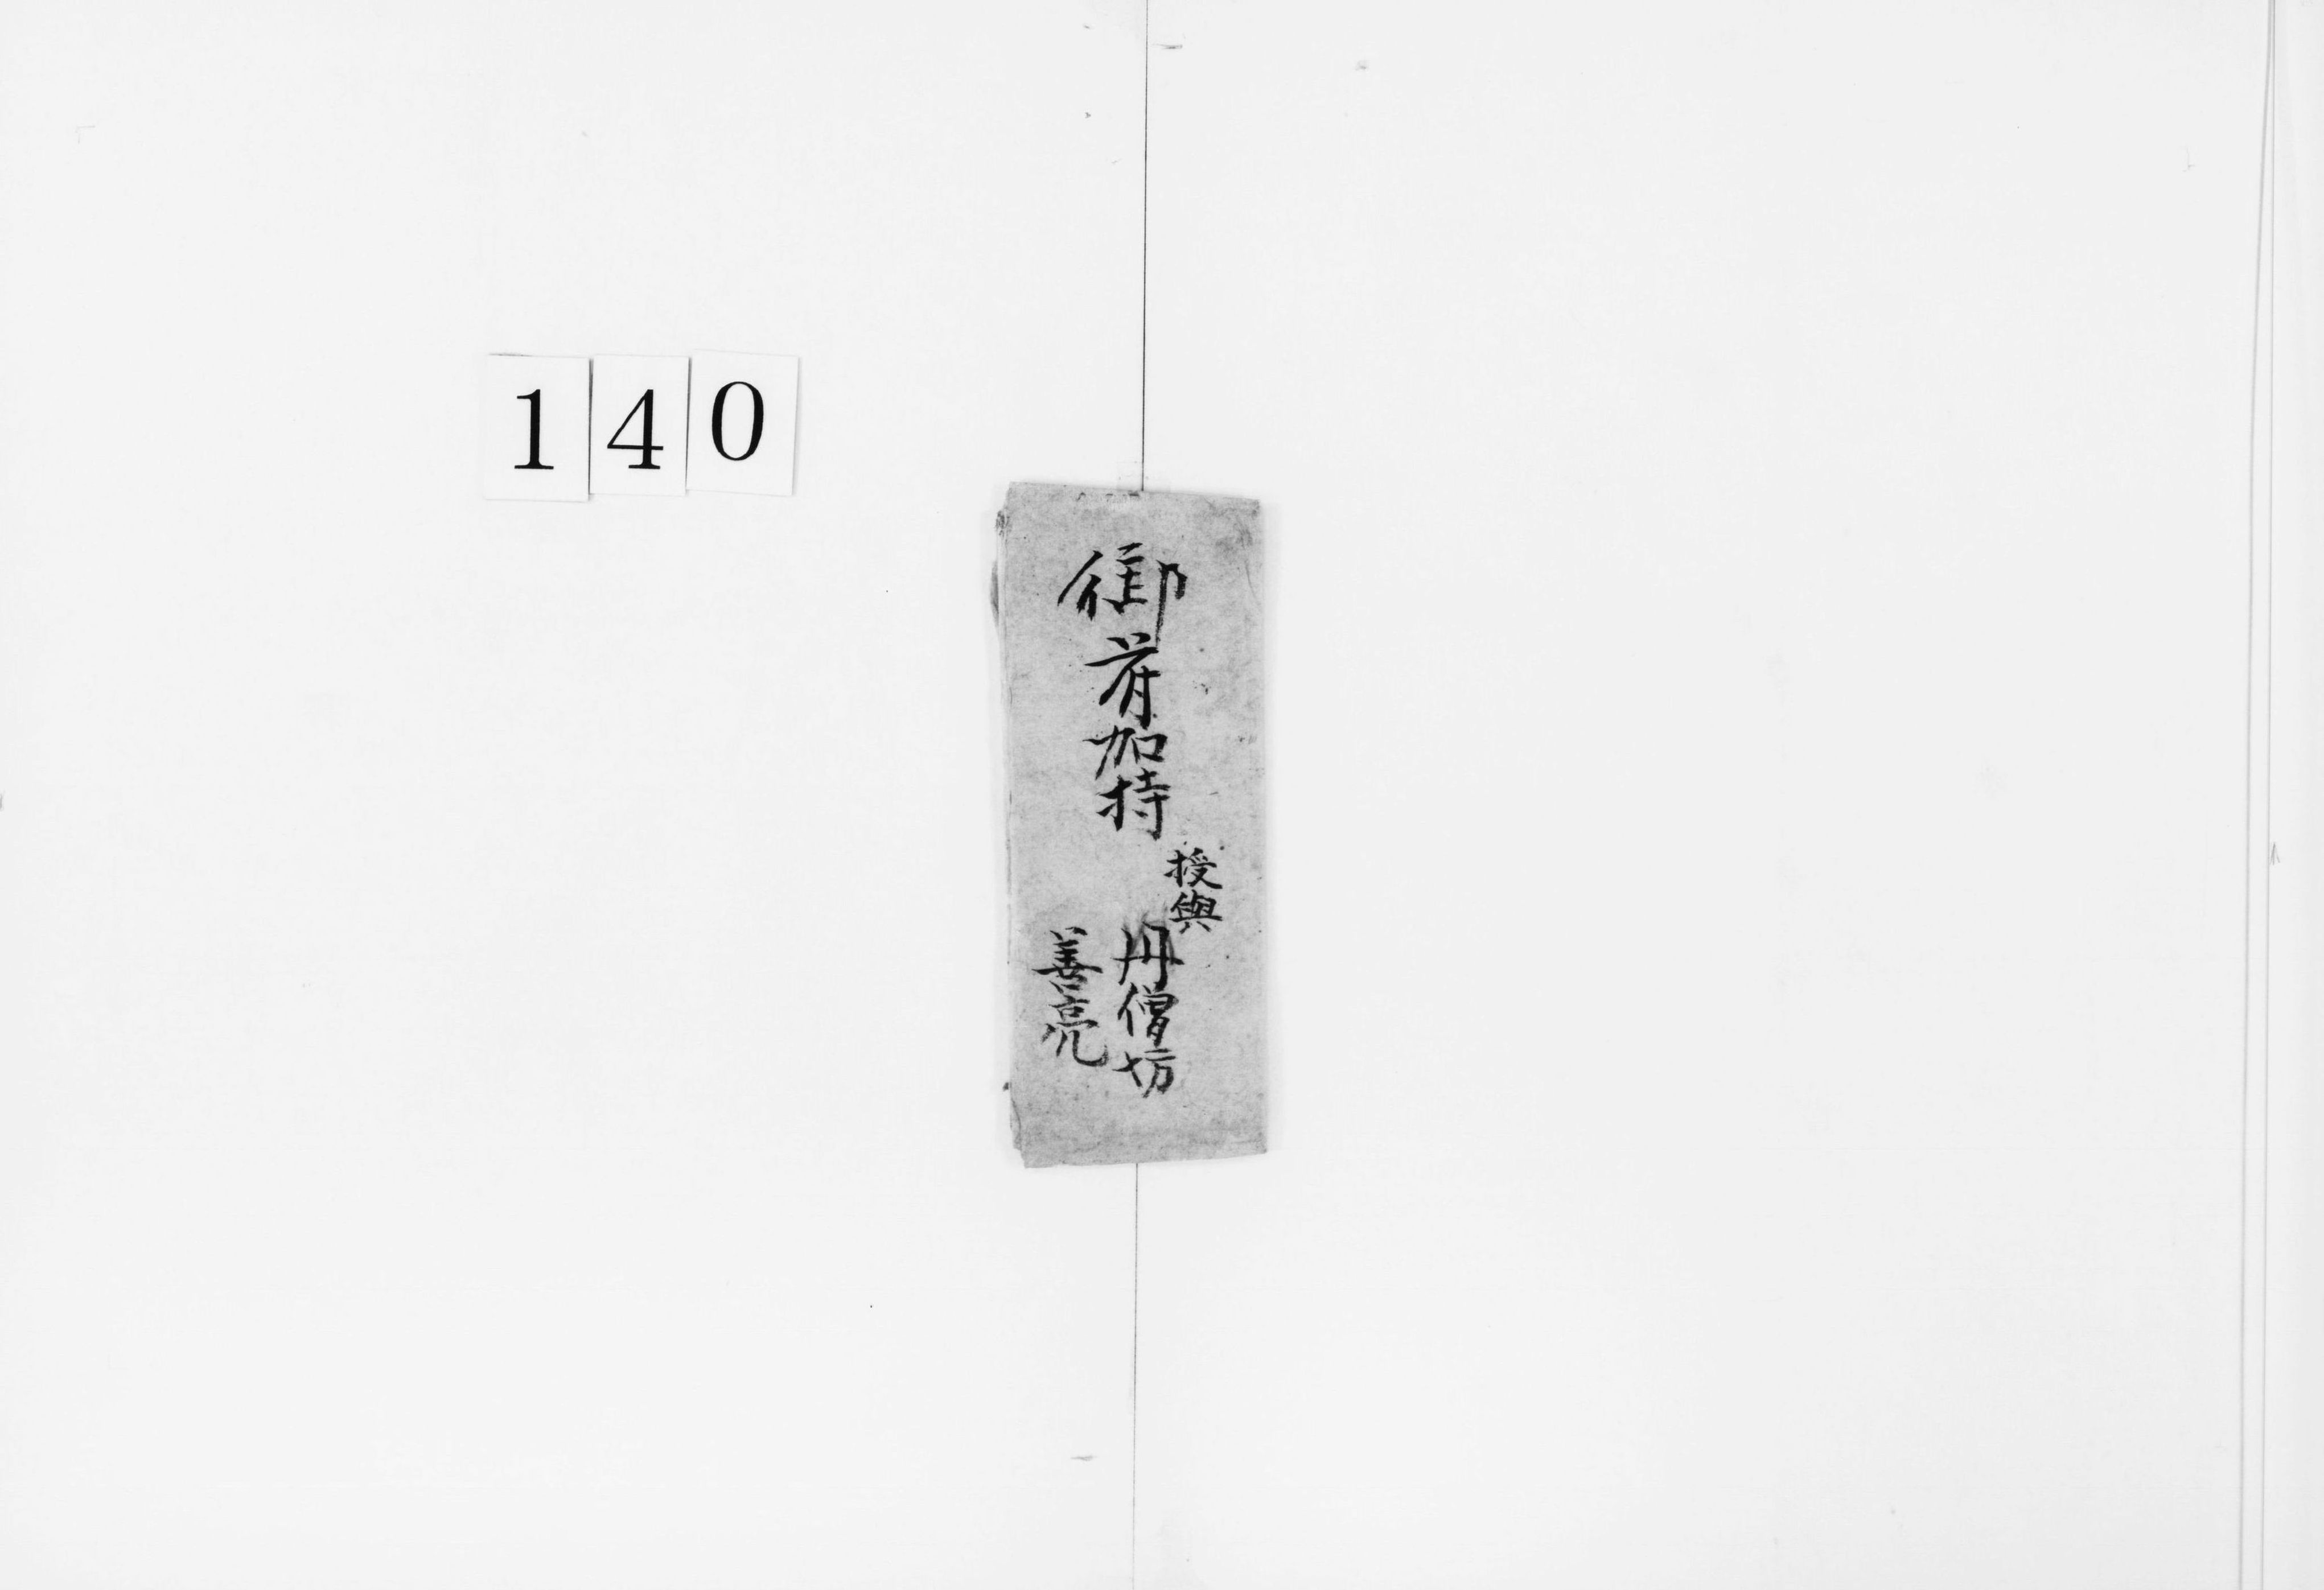 140
御前加持
授與
丹僧坊
善亮